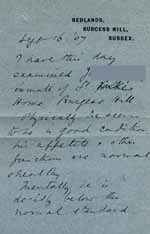 REDLANDS,
BURGESS HILL,
SUSSEX.
Sept 16 '07
I have this day
examined J
inmate of St
Home Burgess Hill
Physically he seems
to be in good condition
his appetite & other
functions are normal
& healthy
Mentally he is
decidedly below the
normal standard.